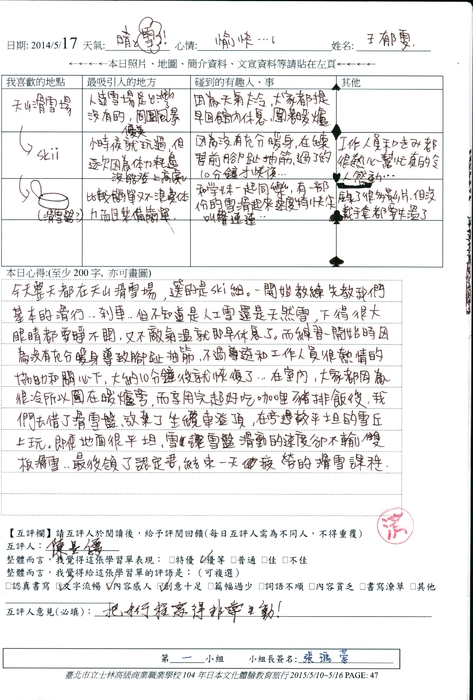 日期: 2014/5/17 天氣: 晴雪!! 心情: 愉快…! 姓名: 王郁雯
本日照片、地圖、簡介資料、文宣資料等請貼在左頁
我喜歡的地點 最吸引人的地方 碰到的有趣人、事 其他
天山滑雪場
人造雪場是台灣沒有的,周圍風景優美
因為天氣太冷,大家都提早回館內休息,圍著暖爐
skii
小時候就玩過,但這次因為體力
因為沒有充分暖身,在練習前腳趾抽筋,過了約10分鐘才恢復
工作人員和
(滑雪盆)
比較簡單又不浪費體力而且裝備簡單
和學妹一起同樂,有一部份的雪滑起來速度特快
本日心得:(至少 200 字, 亦可畫圖)
今天整天都在天山滑雪場,選的是ski組。一開始教練先教我們
基本的滑行…剎車…但不知道是人工雪還是天然雪,下得很大
眼睛都要睜不開,又不敵氣溫就提早休息了。而練習一開始時因
為沒有充分暖身導致腳趾抽筋,不過導遊和工作人員很熱情的
協助和關心下,大約10分鐘後就恢復了…在室內,大家都因為
很冷所以圍在暖爐旁,而享用完超好吃咖哩豬排飯後,我
們去借了滑雪盤,放棄了坐纜車登頂,在旁邊較平坦的雪丘
上玩。即使地面很平坦,雪讓雪盤滑動的速度卻不輸雙
板滑雪…最後領了認定書,結束一天疲勞的滑雪課程。
【互評欄】請互評人於閱讀後,給予評閱回饋(每日互評人需為不同人,不得重覆)
互評人:
整體而言,我覺得這張學習單表現: □特優 □優等 □普通 □佳 □不佳
整體而言,我覺得給這張學習單的評語是: (可複選)
□認真書寫 □文字流暢 □內容感人 □創意十足 □篇幅過少 □詞語不順 □內容貧乏 □書寫潦草 □其他
互評人意見(必填): 把本行程寫得非常生動!
第 一 小組 小組長簽名:
臺北市立士林高級商業職業學校 104 年日本文化體驗教育旅行 2015/5/10~5/16 PAGE: 47